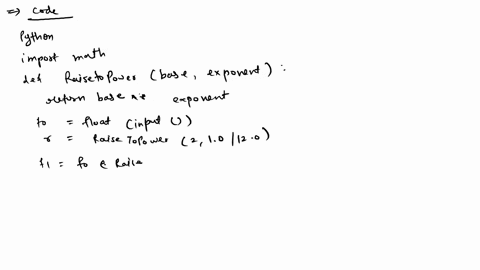 => Code
Python
import math
def RaisetoPower (base, exponent) :
return base ** exponent
fo = float (input ())
r = RaiseToPower (2, 1.0/12.0)
f1 = fo * Raise